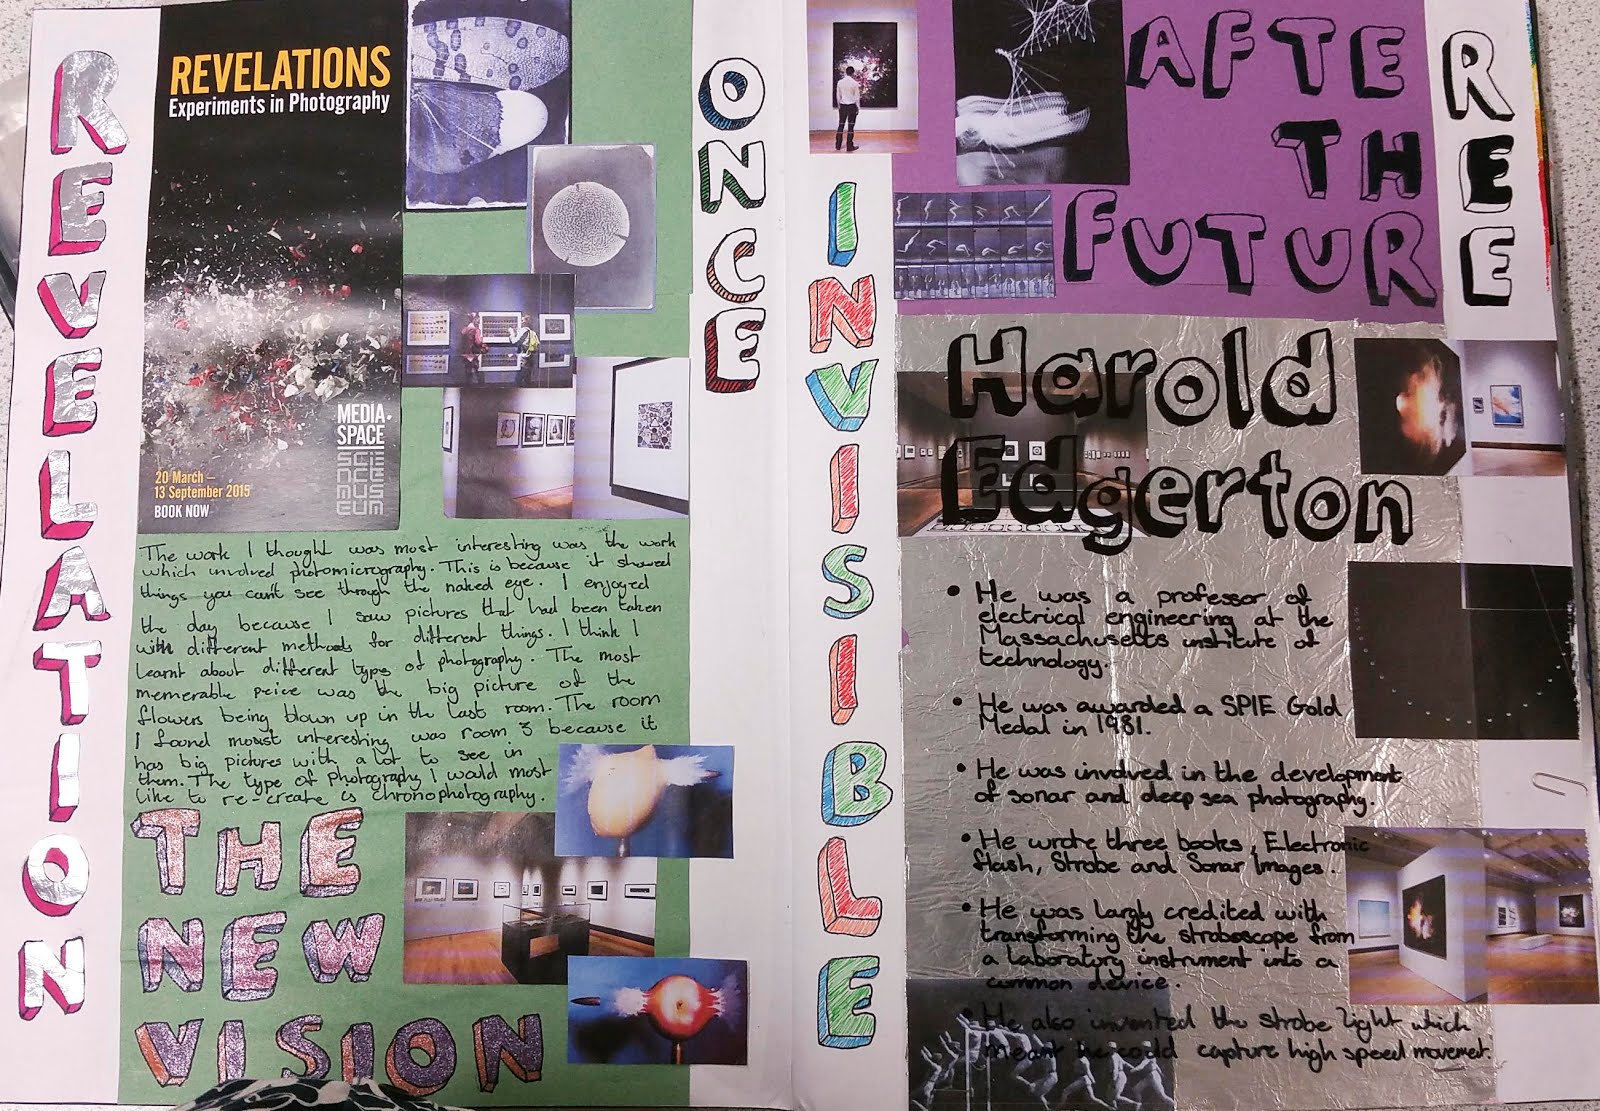 REVELATION
REVELATIONS
Experiments in Photography
MEDIA
SPACE
SCIE
NCE
MUS
EUM
20 March –
13 September 2015
BOOK NOW
The work I thought was most interesting was the work
which involved photomicrography. This is because it showed
things you can't see through the naked eye. I enjoyed
the day because I saw pictures that had been taken
with different methods for different things. I think I
learnt about different types of photography. The most
memerable peice was the big picture of the
flowers being blown up in the last room. The room
I found mosst interesting was room 3 because it
has big pictures with a lot to see in
them. The type of photography I would most
like to re-create is chronophotography.
THE
NEW
VISION
ONCE
INVISIBLE
AFTE
TH
FUTUR
REE
Harold
Edgerton
• He was a professor of
electrical engineering at the
Massachusetts institute of
technology.
• He was awarded a SPIE Gold
Medal in 1981.
• He was involved in the development
of sonar and deep sea photography.
• He wrote three books, Electronic
flash, Strobe and Sonar Images.
• He was largly credited with
transforming the stroboscope from
a laboratory instrument into a
common device.
• He also invented the strobe light which
meant he could capture high speed movement.